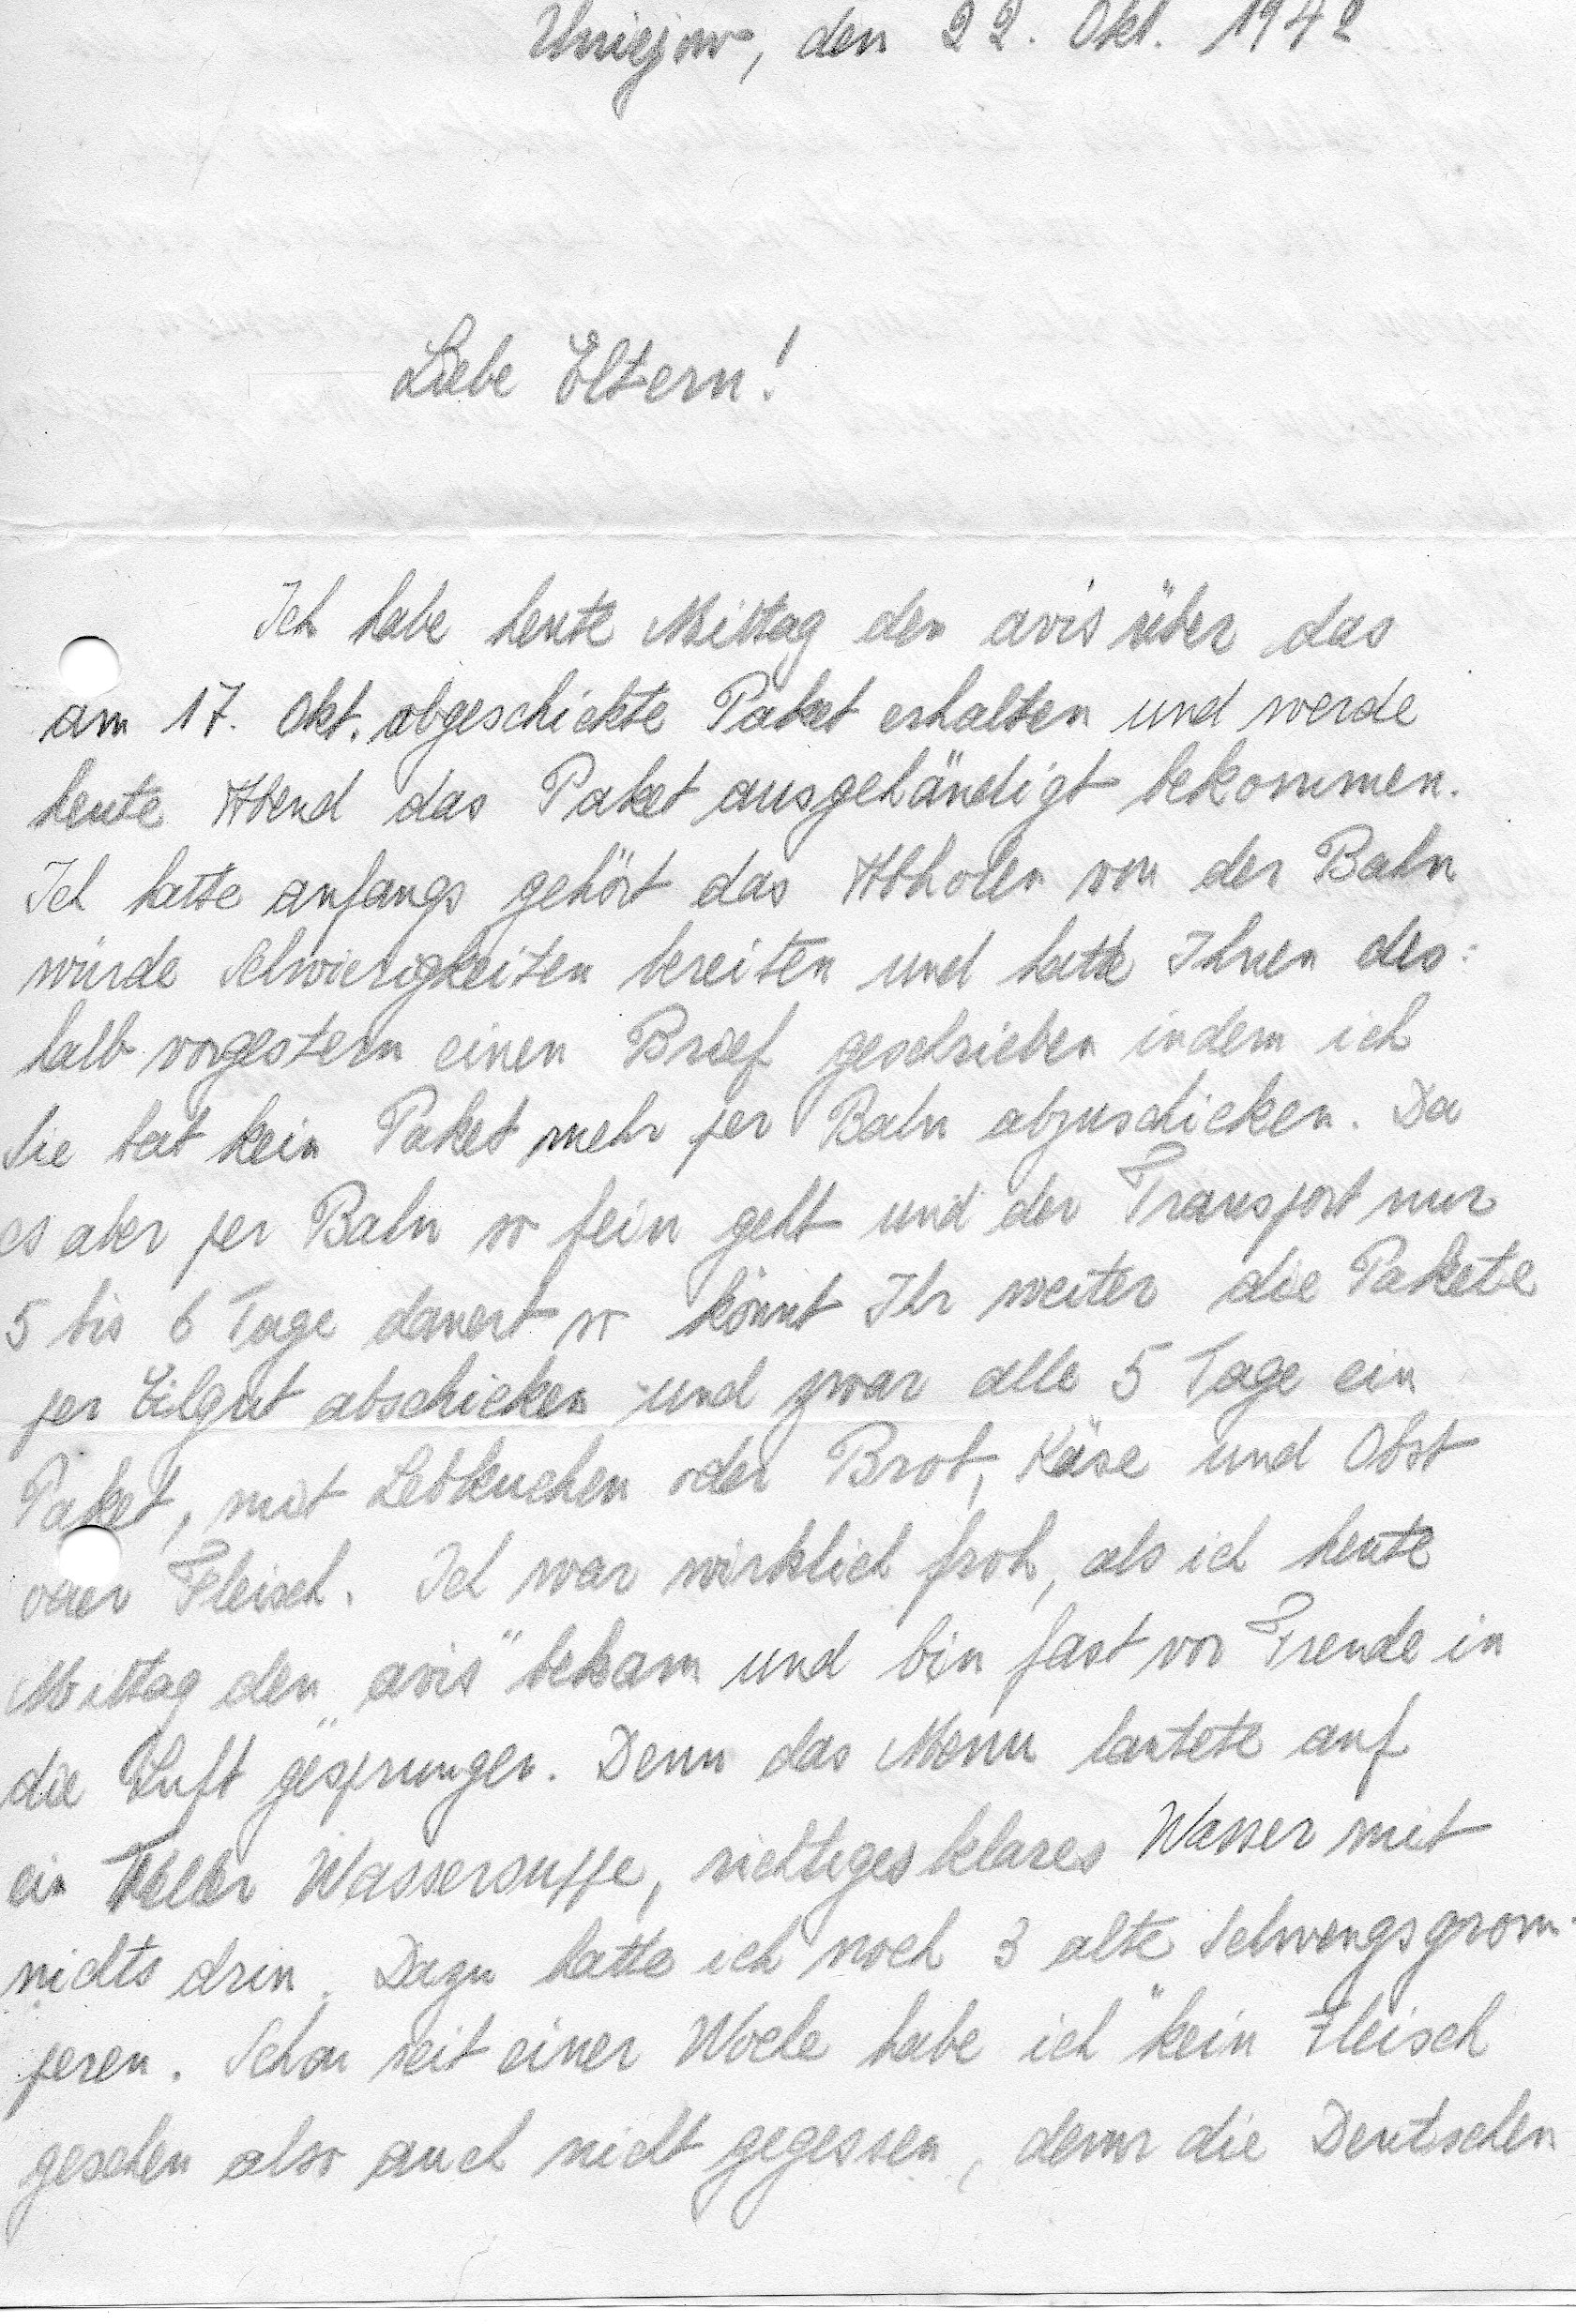 Uniejow, den 22. Okt. 1942
Liebe Eltern!
Ich habe heute Mittag den avis über das
am 17. Okt. abgeschickte Paket erhalten und werde
heute Abend das Paket ausgehändigt bekommen.
Ich hatte anfangs gehört das Abholen von der Bahn
würde Schwierigkeiten bereiten und hatte Ihnen des:
halb vorgestern einen Brief geschrieben indem ich
Sie bat kein Paket mehr per Bahn abzuschicken. Da
es aber per Bahn so fein geht und der Transport nur
5 bis 6 Tage dauert so könnt Ihr weiter die Pakete
per Eilgut abschicken und zwar alle 5 Tage ein
Paket, mit Lebkuchen oder Brot, Käse und Obst
oder Fleisch. Ich war wirklich froh, als ich heute
Mittag den „avis" bekam und bin fast vor Freude in
die Luft gesprungen. Denn das Menu lautete auf
ein Teller Wassersuppe, richtiges klares Wasser mit
nichts drin. Dazu hatte ich noch 3 alte „Schwengsgrom-
peren". Schon seit einer Woche habe ich kein Fleisch
gesehen also auch nicht gegessen, denn die Deutschen